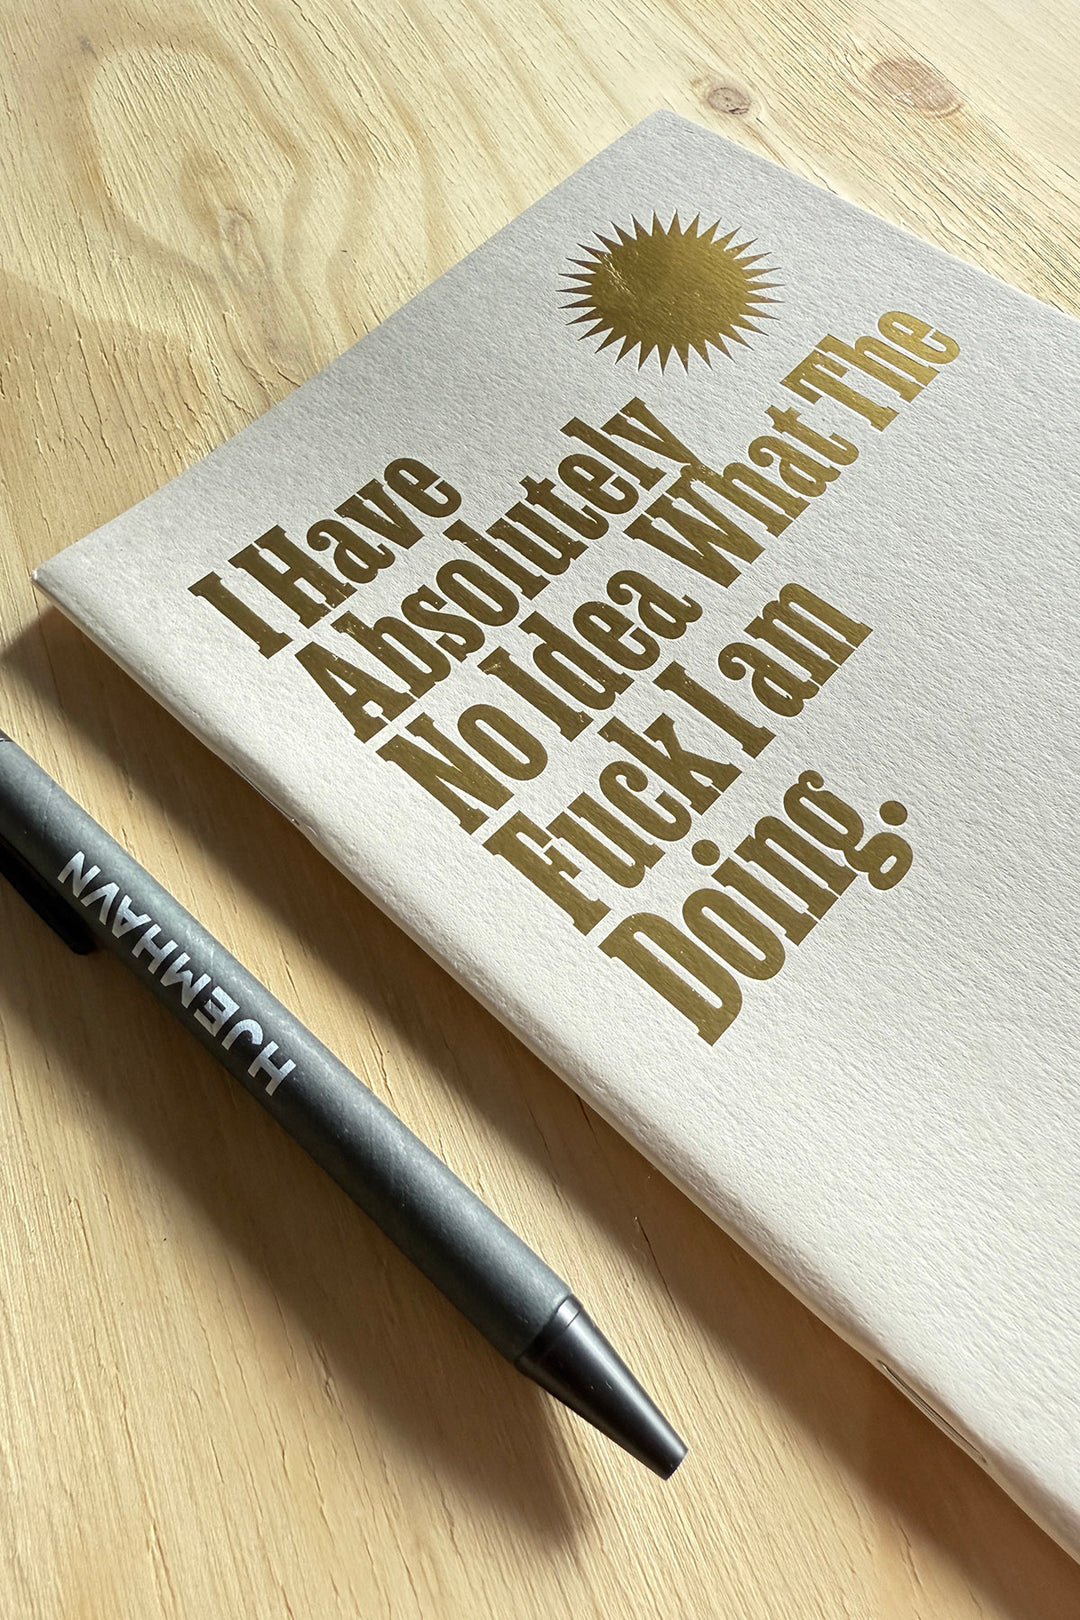 I Have
Absolutely
No Idea What The
Fuck I am
Doing.
HJEMHAVN